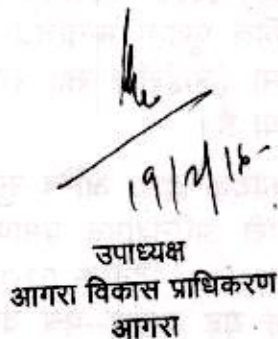 19/2/16
उपाध्यक्ष
आगरा विकास प्राधिकरण
आगरा